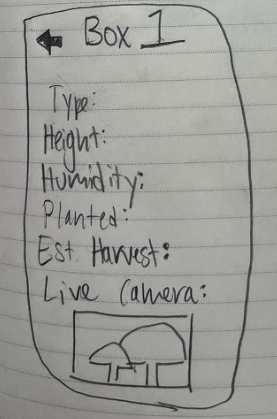 Box 1
Type:
Height:
Humidity:
Planted:
Est. Harvest:
Live Camera: